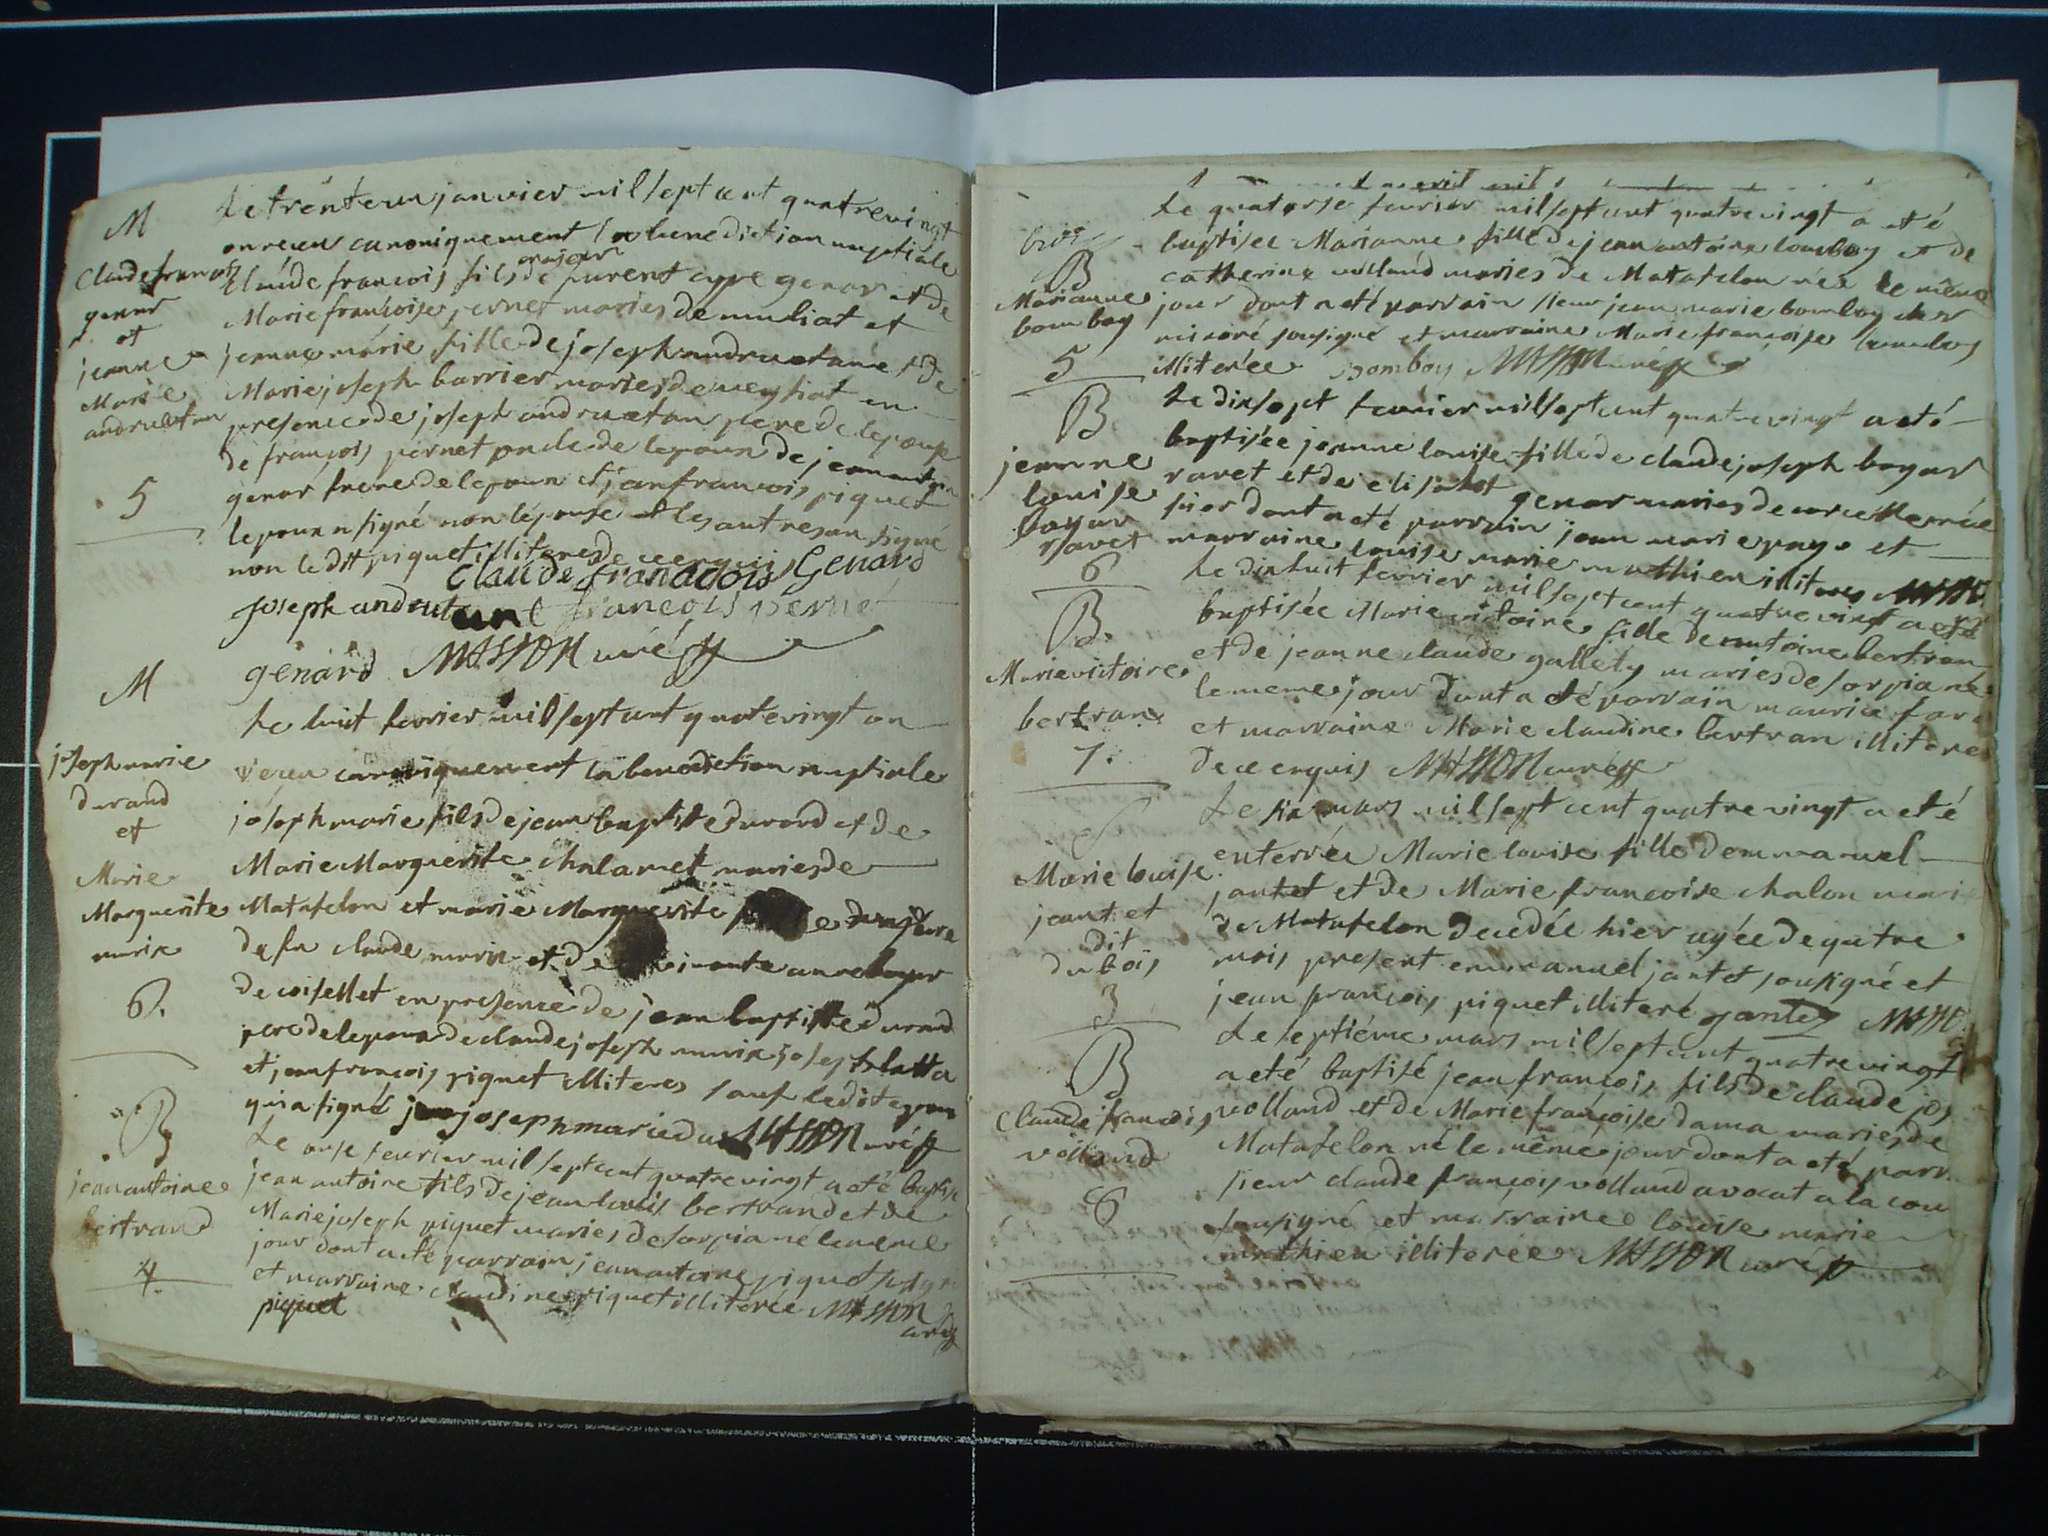 M
Le trente un janvier mil sept cent quatrevingt
on reçeu canoniquement la benediction nuptiale
majeur
Claude françois fils de purent cype genar et de
Claude francois
genar
et
jeanne
Marie
andruetan
Marie françoise pernet mariés de muliat et
jeanne marie fille de joseph andruetan et de
Marie joseph barrier mariés de veysiat en
presence de joseph andruetan pere de lepouse
de françois pernet oncle de lepoux de jean
genar frere de lepoux et jean francois piquet
5
lepoux a signé non lépouse et les autres ont signé
non le dit piquet illiteres de ce enquis
Claude Franacois Genard
joseph andrutant francois perné
genard MASSON curé
M
joseph marie
durand
et
Marie
Marguerite
marix
6.
Le huit fevrier mil sept cent quatrevingt on
reçeu canoniquement la benediction nuptiale
joseph marie fils de jean baptiste durand et de
Marie Marguerite chalamet mariés de
Matafelon et marie Marguerite
de feu claude marix et de
de coiselet en presence de jean baptiste durand
pere de lepoux de claude joseph marix joseph latta
et jean françois piquet illiteres sauf ledit epoux
qui a signé joseph marie du MASSON curé
B
jean antoine
bertrand
4.
Le onse fevrier mil sept cent quatrevingt a eté baptisé
jean antoine fils de jean louis bertrand et de
Marie joseph piquet mariés de sorpia né le meme
jour dont a eté parrain jean antoine piquet
et marraine claudine piquet illiterée MASSON
piquet curé
B
Marianne
bomboy
5
Le quatorse fevrier mil sept cent quatrevingt a eté
baptisée Marianne fille de jean antoine bomboy et de
catherine volland mariés de Matafelon née le même
jour dont a eté parrain sieur jean marie bomboy
sousigné et marraine Marie françoise bomboy
illiterée bomboy MASSON curé
B
jeanne
louise
boyar
ravet
6
Le dix sept fevrier mil sept cent quatrevingt a eté
baptisée jeanne louise fille de claude joseph boyar
ravet et de elisabet genor mariés de corcelle née
hier dont a eté parrain jean marie page et
marraine louise marie mathieu illiteres MASSON
B.
Marie victoire
bertran
7.
Le dix huit fevrier mil sept cent quatre vingt a eté
baptisée Marie victoire fille de antoine bertran
et de jeanne claude gallety mariés de sorpia née
le meme jour dont a eté parrain maurice
et marraine Marie claudine bertran illiteres
de ce enquis MASSON curé
Marie louise
jantet
dit
dubois
3
Le six mars mil sept cent quatre vingt a eté
enterrée Marie louise fille demmanuel
jantet et de Marie francoise chalon
de Matafelon decedée hier agée de quatre
mois present emmanuel jantet sousigné et
jean françois piquet illiteré jantet MASSON
B
Claude francois
volland
6
Le septiéme mars mil sept cent quatre vingt
a eté baptisé jean françois fils de claude jos
volland et de Marie françoise dama mariés de
Matafelon né le même jour dont a eté parr
sieur claude françois volland avocat a la cou
sousigné et marraine louise marie
mathieu illiterée MASSON curé